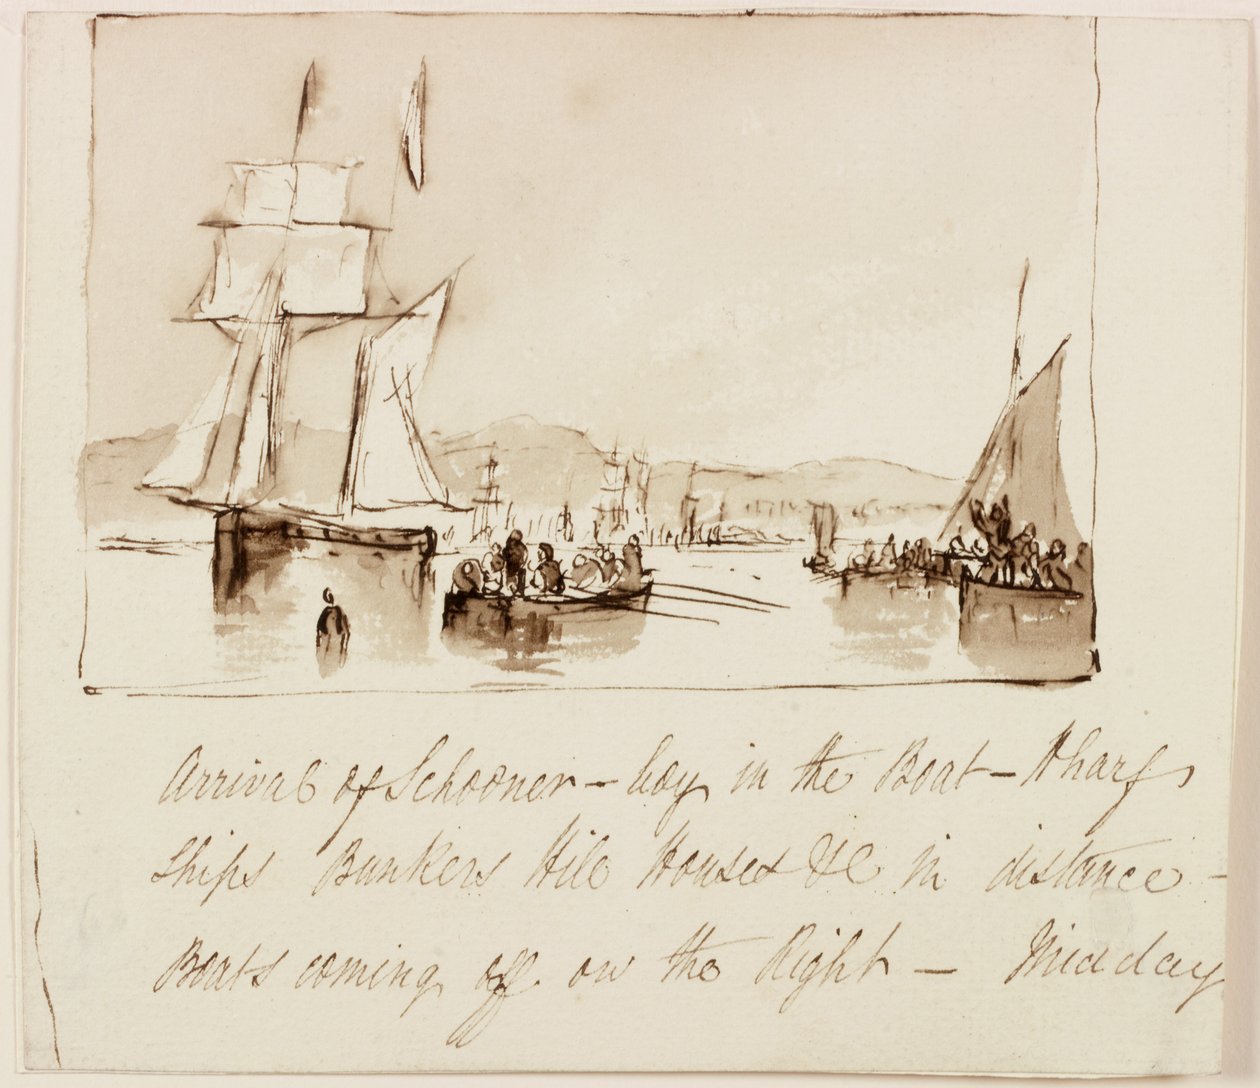 Arrival of Schooner – boy in the Boat – Wharf
Ships Bunkers Hill Houses &c in distance –
Boats coming off on the Right – Midday